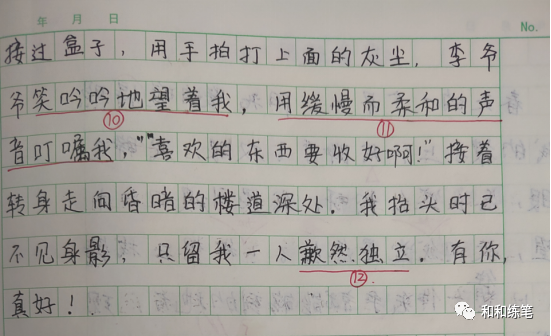 年 月 日 No.
接过盒子，用手拍打上面的灰尘，李爷
爷笑吟吟地望着我，用缓慢而柔和的声
⑩ ⑪
音叮嘱我，“喜欢的东西要收好啊！”接着
转身走向昏暗的楼道深处。我抬头时已
不见身影，只留我一人歉然独立。有你，
⑫
真好！
和和练笔